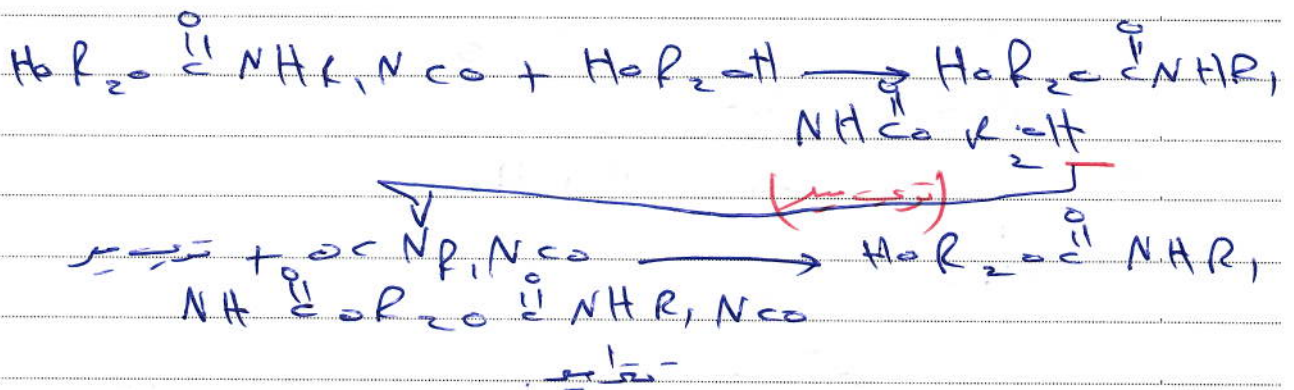 HOR₂O C(=O) NHR₁NCO + HOR₂OH → HOR₂O C(=O) NHR₁
NH C(=O) O R₂ OH
(تريمر)
تريمر + OCNR₁NCO → HOR₂O C(=O) NHR₁
NH C(=O) OR₂O C(=O) NHR₁NCO
تترامر